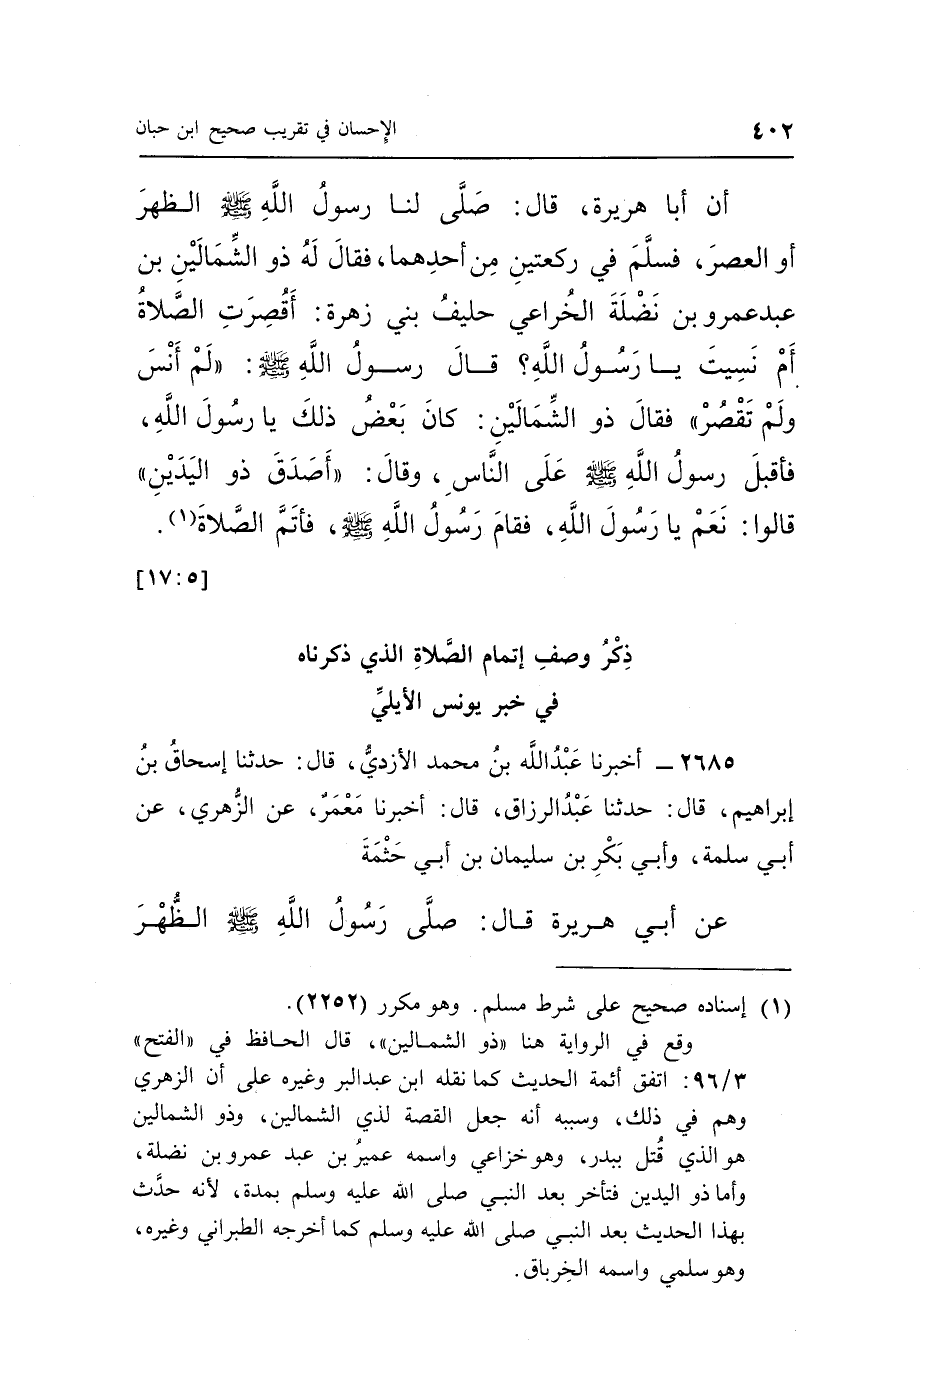 ٤٠٢ الإحسان في تقريب صحيح ابن حبان
أن أبا هريرة، قال: صَلَّى لنا رسولُ اللَّهِ ﷺ الظهرَ
أو العصرَ، فسلَّمَ في ركعتينِ مِن أحدِهما، فقالَ لَهُ ذو الشِّمَالَيْنِ بن
عبدعمرو بن نَضْلَةَ الخُراعي حليفُ بني زهرة: أَقُصِرَتِ الصَّلاةُ
أَمْ نَسِيتَ يا رَسُولُ اللَّهِ؟ قالَ رسولُ اللَّهِ ﷺ: «لَمْ أَنْسَ
ولَمْ تَقْصُرْ» فقالَ ذو الشِّمَالَيْنِ: كانَ بَعْضُ ذلكَ يا رسُولَ اللَّهِ،
فأقبلَ رسولُ اللَّهِ ﷺ عَلَى النَّاسِ، وقالَ: «أَصَدَقَ ذو اليَدَيْنِ»
قالوا: نَعَمْ يا رَسُولَ اللَّهِ، فقامَ رَسُولُ اللَّهِ ﷺ، فأتَمَّ الصَّلاةَ(١).
[١٧:٥]
ذِكْرُ وصفِ إتمام الصَّلاةِ الذي ذكرناه
في خبر يونس الأيليِّ
٢٦٨٥ ـ أخبرنا عَبْدُاللَّه بنُ محمد الأزديُّ، قال: حدثنا إسحاقُ بنُ
إبراهيم، قال: حدثنا عَبْدُالرزاق، قال: أخبرنا مَعْمَرٌ، عن الزُّهري، عن
أبي سلمة، وأبي بَكْرِ بن سليمان بن أبي حَثْمَةَ
عن أبي هريرة قال: صلَّى رَسُولُ اللَّهِ ﷺ الظُّهْرَ
(١) إسناده صحيح على شرط مسلم. وهو مكرر (٢٢٥٢).
وقع في الرواية هنا «ذو الشمالين»، قال الحافظ في «الفتح»
٩٦/٣: اتفق أئمة الحديث كما نقله ابن عبدالبر وغيره على أن الزهري
وهم في ذلك، وسببه أنه جعل القصة لذي الشمالين، وذو الشمالين
هو الذي قُتل ببدر، وهو خزاعي واسمه عميرُ بن عبد عمرو بن نضلة،
وأما ذو اليدين فتأخر بعد النبي صلى الله عليه وسلم بمدة، لأنه حدَّث
بهذا الحديث بعد النبي صلى الله عليه وسلم كما أخرجه الطبراني وغيره،
وهو سلمي واسمه الخِرباق.